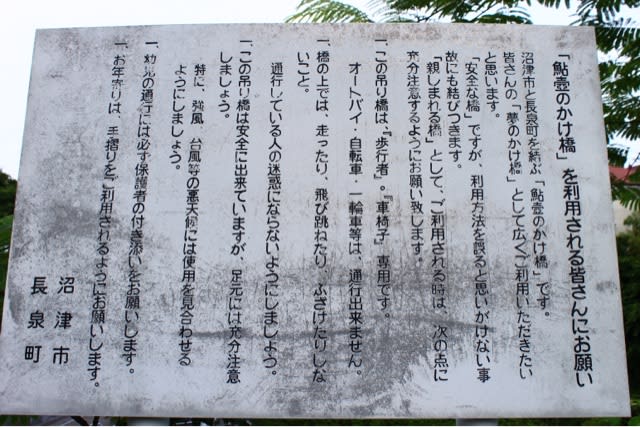 「鮎壺のかけ橋」を利用される皆さんにお願い
沼津市と長泉町を結ぶ「鮎壺のかけ橋」です。
皆さんの「夢のかけ橋」として広くご利用いただきたい
と思います。
「安全な橋」ですが、利用方法を誤ると思いがけない事
故にも結びつきます。
「親しまれる橋」として、ご利用される時は、次の点に
充分注意するようにお願い致します。
一、この吊り橋は、『歩行者』。『車椅子』専用です。
オートバイ・自転車・一輪車等は、通行出来ません。
一、橋の上では、走ったり、飛び跳ねたり、ふざけたりしな
いこと。
通行している人の迷惑にならないようにしましょう。
一、この吊り橋は安全に出来ていますが、足元には充分注意
しましょう。
特に、強風、台風等の悪天候には使用を見合わせる
ようにしましょう。
一、幼児の通行には必ず保護者の付き添いをお願いします。
一、お年寄りは、手摺りをご利用されるようにお願いします。
沼津市
長泉町